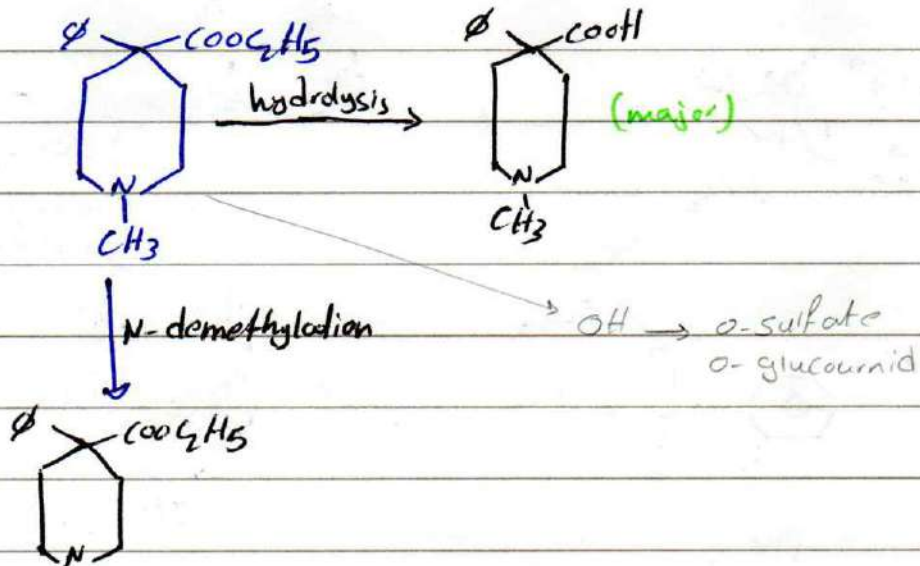 ø COOC2H5
ø COOH
hydrolysis
(major)
N
CH3
N
CH3
N-demethylodion
OH → O-sulfate
O-glucournid
ø COOC2H5
N